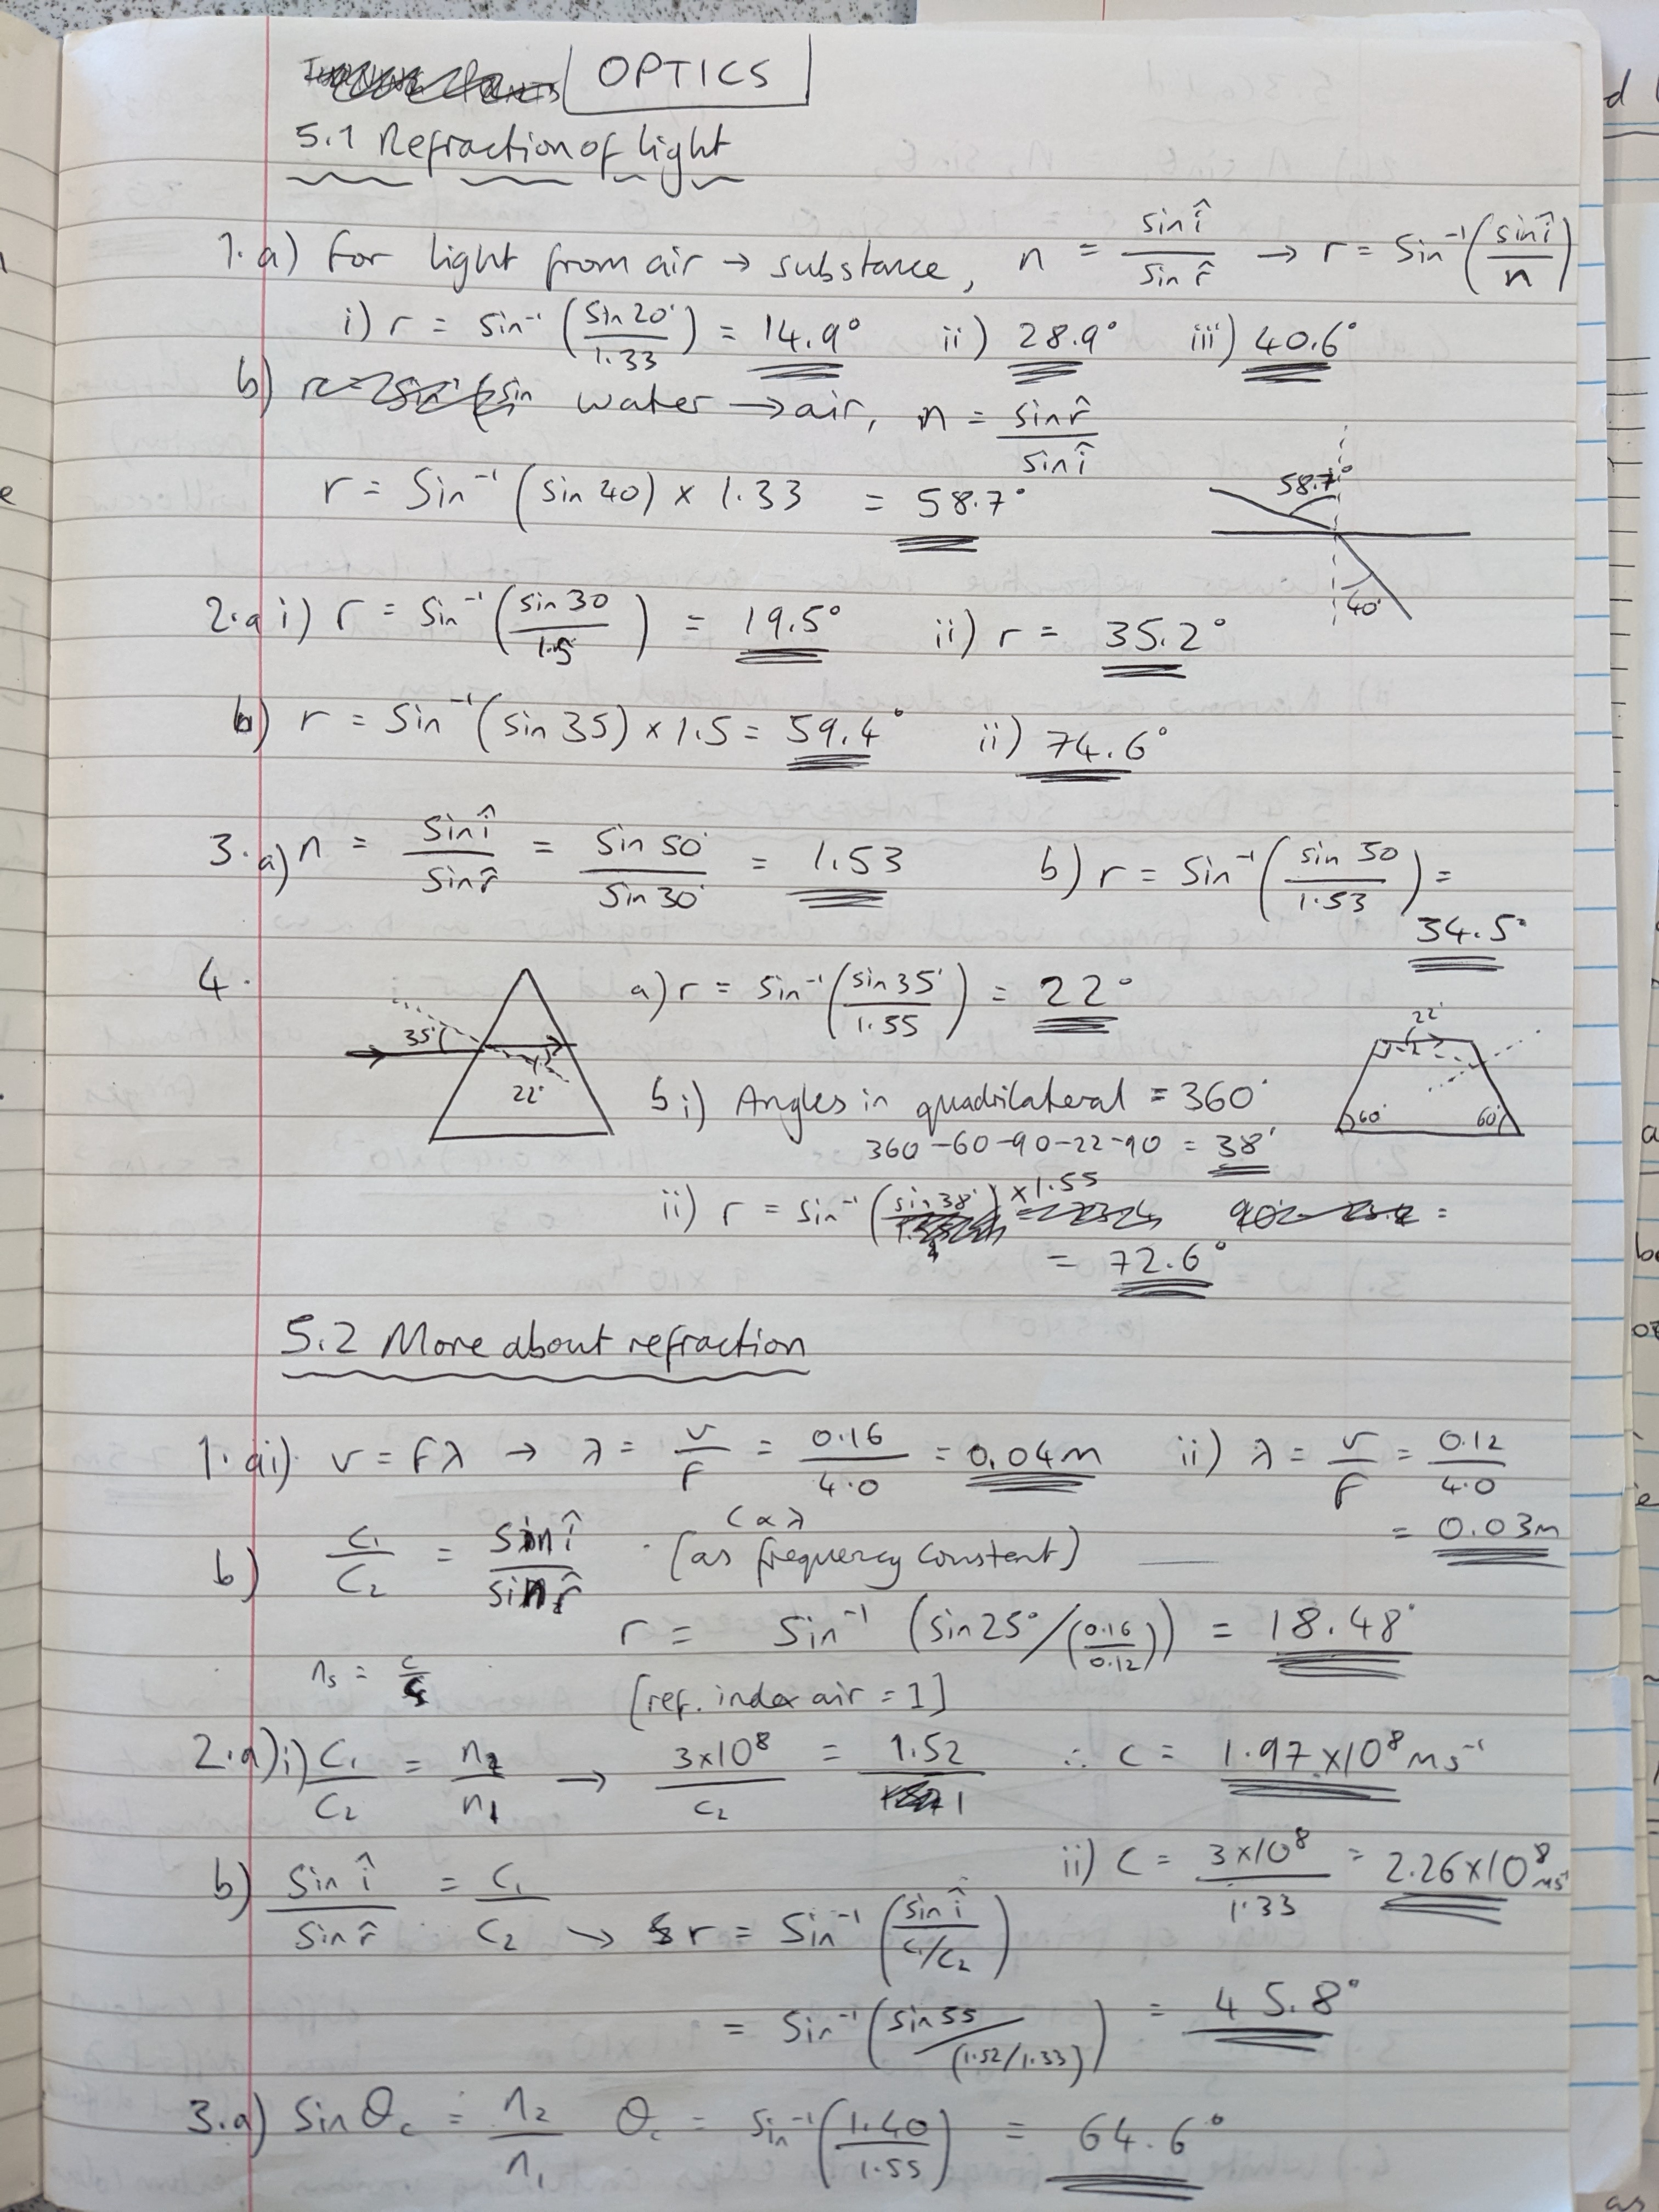 OPTICS
5.1 Refraction of light
1. a) For light from air → substance, n = sin î / sin r̂ → r = sin⁻¹(sin î / n)
i) r = sin⁻¹(sin 20° / 1.33) = 14.9° ii) 28.9° iii) 40.6°
b) water → air, n = sin r̂ / sin î
r = sin⁻¹(sin 40) × 1.33 = 58.7°
58.7°
40°
2. a i) r = sin⁻¹(sin 30 / 1.5) = 19.5° ii) r = 35.2°
b) r = sin⁻¹(sin 35) × 1.5 = 59.4° ii) 74.6°
3. a) n = sin î / sin r̂ = sin 50° / sin 30° = 1.53 b) r = sin⁻¹(sin 50 / 1.53) =
34.5°
4. a) r = sin⁻¹(sin 35° / 1.55) = 22°
35°
22°
22°
60° 60°
b i) Angles in quadrilateral = 360°
360 - 60 - 90 - 22 - 90 = 38°
ii) r = sin⁻¹(sin 38°) × 1.55 =
= 72.6°
5.2 More about refraction
1. ai) v = fλ → λ = v / f = 0.16 / 4.0 = 0.04m ii) λ = v / f = 0.12 / 4.0
= 0.03m
b) c₁ / c₂ = sin î / sin r̂ · c ∝ λ (as frequency constant)
r = sin⁻¹(sin 25° / (0.16 / 0.12)) = 18.48°
nₛ = c / cₛ [ref. index air = 1]
2. a) i) c₁ / c₂ = n₂ / n₁ → 3×10⁸ / c₂ = 1.52 / 1 ∴ c = 1.97 × 10⁸ ms⁻¹
ii) c = 3×10⁸ / 1.33 = 2.26×10⁸ ms⁻¹
b) sin î / sin r̂ = c₁ / c₂ → r = sin⁻¹(sin î / c₁/c₂)
= sin⁻¹(sin 55 / (1.52/1.33)) = 45.8°
3. a) sin θc = n₂ / n₁ θc = sin⁻¹(1.40 / 1.55) = 64.6°